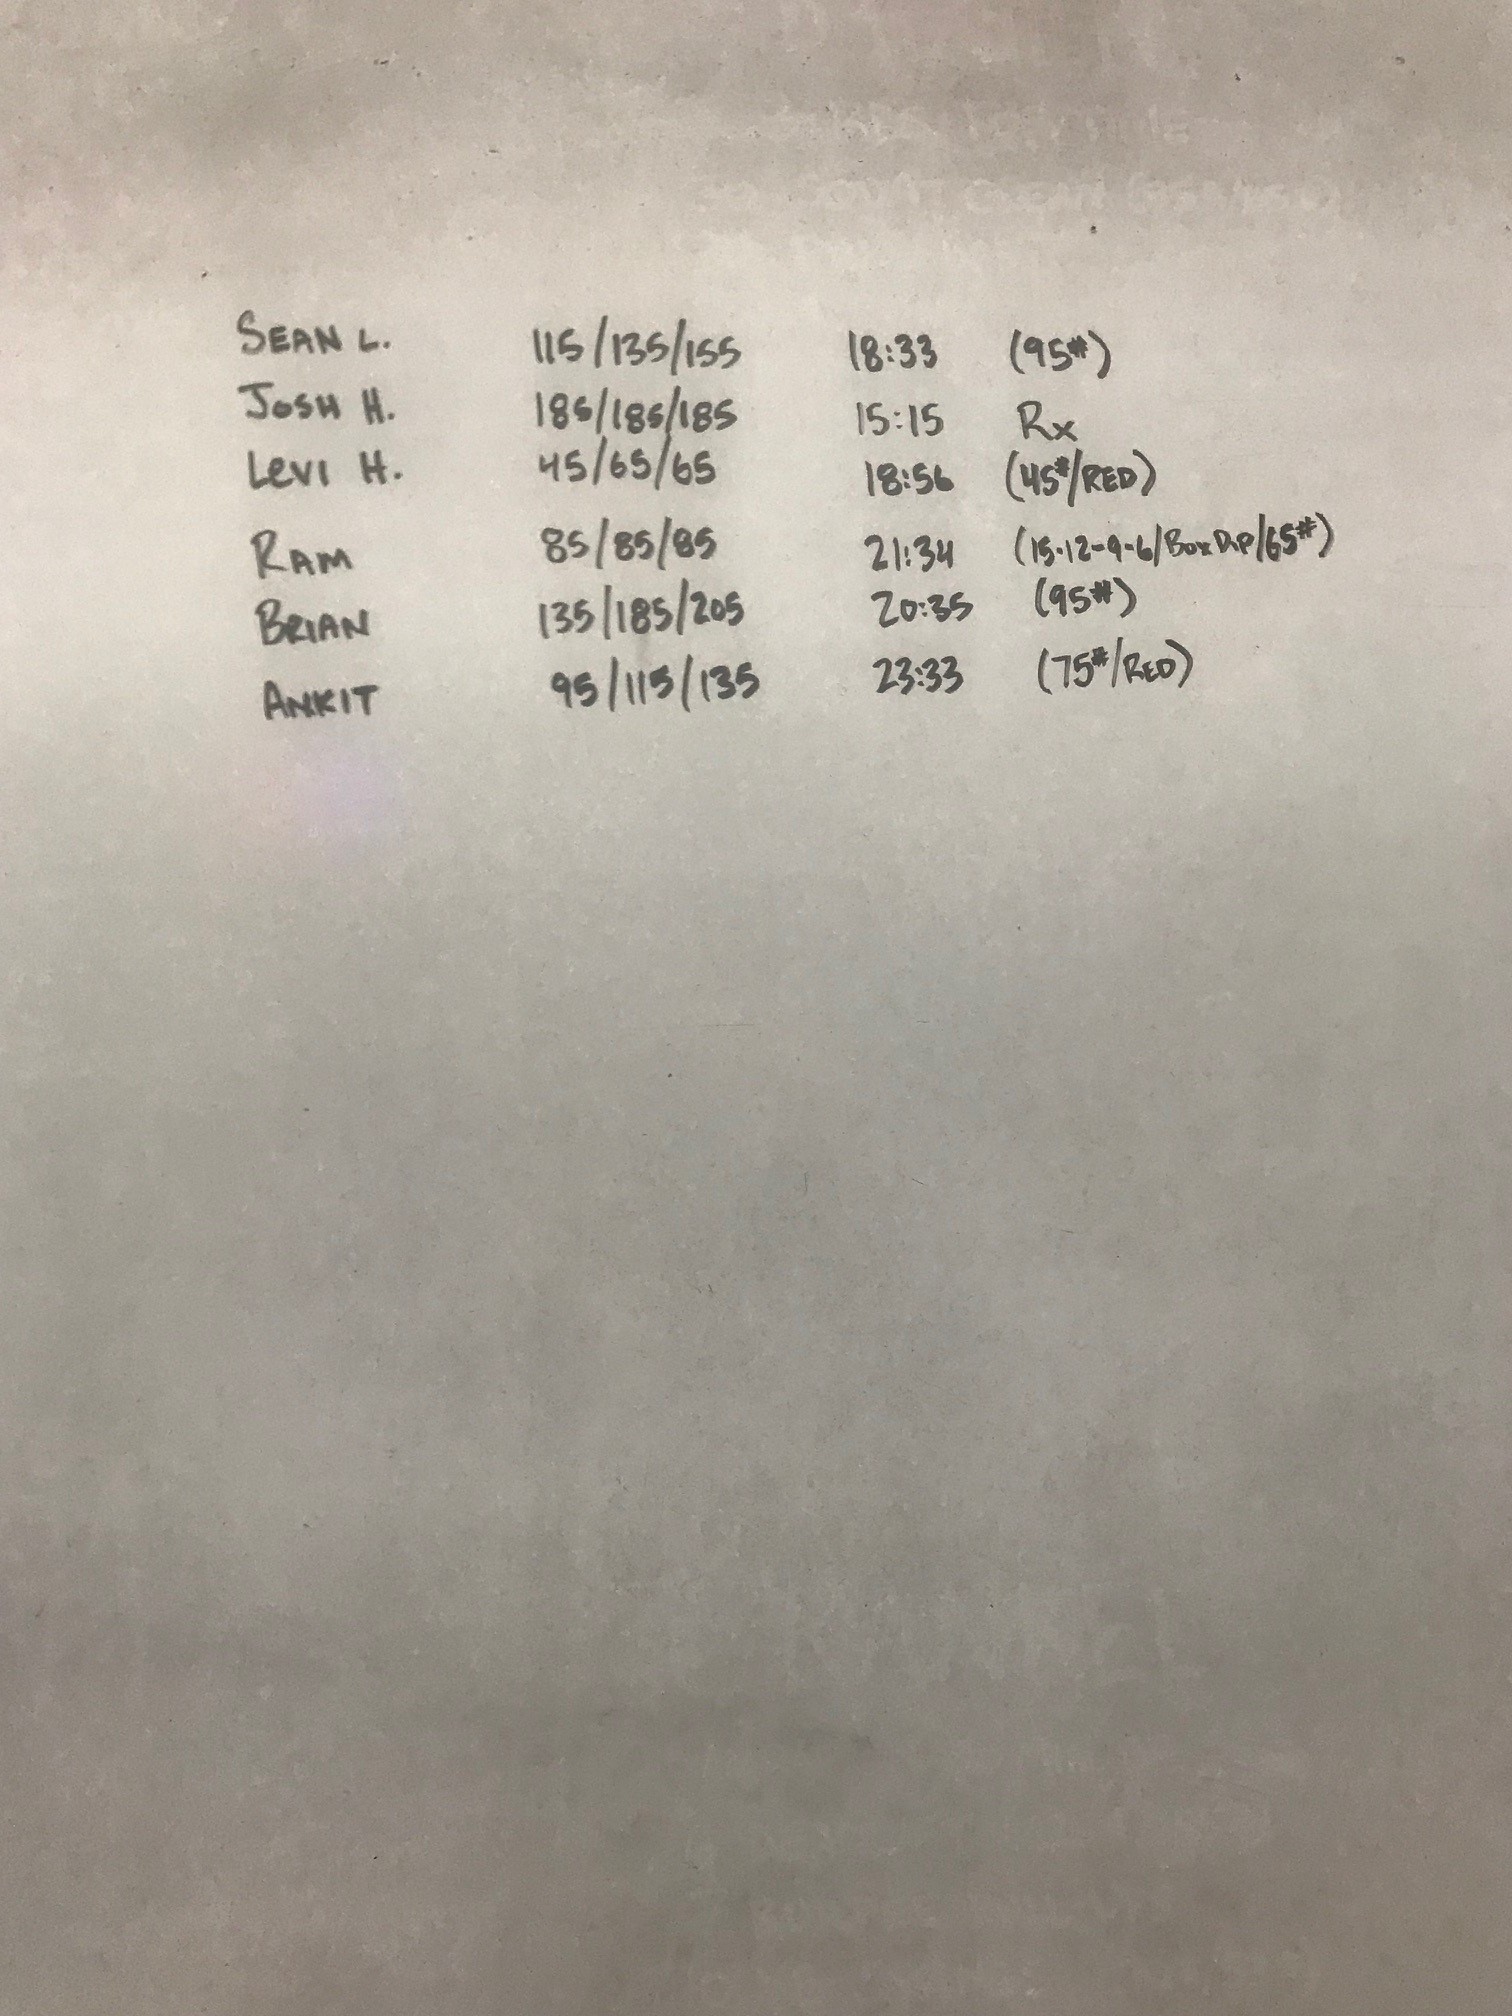 SEAN L. 115/135/155 18:33 (95#)
JOSH H. 185/185/185 15:15 Rx
LEVI H. 45/65/65 18:56 (45#/RED)
RAM 85/85/85 21:34 (15-12-9-6/Box Dip/65#)
BRIAN 135/185/205 20:35 (95#)
ANKIT 95/115/135 23:33 (75#/RED)